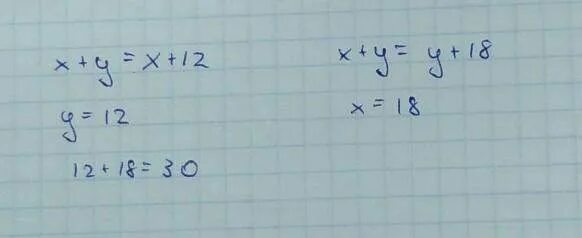 x + y = x + 12
y = 12
12 + 18 = 30
x + y = y + 18
x = 18